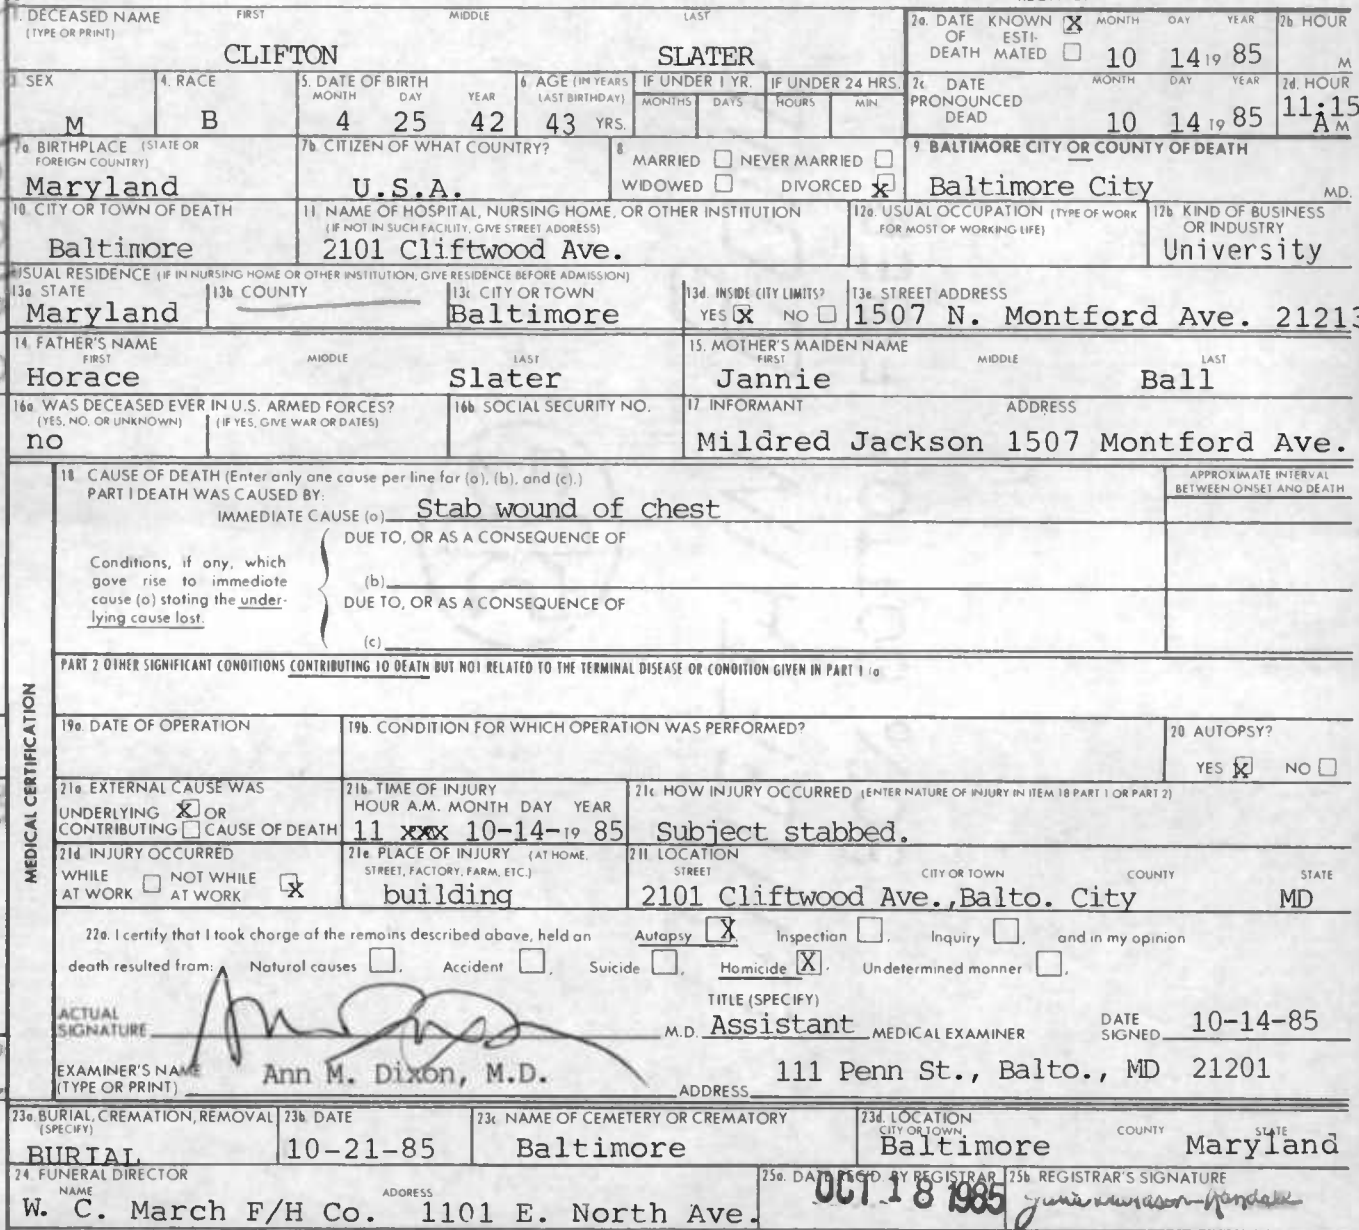 1. DECEASED NAME FIRST MIDDLE LAST
(TYPE OR PRINT)
CLIFTON SLATER
2a. DATE KNOWN X MONTH DAY YEAR
OF ESTI-
DEATH MATED 10 14 19 85
2b HOUR
M
3 SEX
M
4. RACE
B
5. DATE OF BIRTH
MONTH DAY YEAR
4 25 42
6 AGE (IN YEARS
LAST BIRTHDAY)
43 YRS.
IF UNDER 1 YR.
MONTHS DAYS
IF UNDER 24 HRS.
HOURS MIN
2c DATE MONTH DAY YEAR
PRONOUNCED
DEAD 10 14 19 85
2d. HOUR
11:15
A M
7a BIRTHPLACE (STATE OR
FOREIGN COUNTRY)
Maryland
7b. CITIZEN OF WHAT COUNTRY?
U.S.A.
8
MARRIED NEVER MARRIED
WIDOWED DIVORCED X
9 BALTIMORE CITY OR COUNTY OF DEATH
Baltimore City MD.
10. CITY OR TOWN OF DEATH
Baltimore
11. NAME OF HOSPITAL, NURSING HOME, OR OTHER INSTITUTION
(IF NOT IN SUCH FACILITY, GIVE STREET ADDRESS)
2101 Cliftwood Ave.
12a. USUAL OCCUPATION (TYPE OF WORK
FOR MOST OF WORKING LIFE)
12b. KIND OF BUSINESS
OR INDUSTRY
University
USUAL RESIDENCE (IF IN NURSING HOME OR OTHER INSTITUTION, GIVE RESIDENCE BEFORE ADMISSION)
13a STATE
Maryland
13b COUNTY
13c CITY OR TOWN
Baltimore
13d. INSIDE CITY LIMITS?
YES X NO
13e. STREET ADDRESS
1507 N. Montford Ave. 21213
14. FATHER'S NAME
FIRST MIDDLE LAST
Horace Slater
15. MOTHER'S MAIDEN NAME
FIRST MIDDLE LAST
Jannie Ball
16a WAS DECEASED EVER IN U.S. ARMED FORCES?
(YES, NO, OR UNKNOWN) (IF YES, GIVE WAR OR DATES)
no
16b SOCIAL SECURITY NO.
17 INFORMANT ADDRESS
Mildred Jackson 1507 Montford Ave.
MEDICAL CERTIFICATION
18 CAUSE OF DEATH (Enter only one cause per line for (a), (b), and (c).)
PART I DEATH WAS CAUSED BY:
IMMEDIATE CAUSE (a) Stab wound of chest
APPROXIMATE INTERVAL
BETWEEN ONSET AND DEATH
DUE TO, OR AS A CONSEQUENCE OF
Conditions, if any, which
gave rise to immediate
cause (a) stating the under-
lying cause last.
(b)
DUE TO, OR AS A CONSEQUENCE OF
(c)
PART 2 OTHER SIGNIFICANT CONDITIONS CONTRIBUTING TO DEATH BUT NOT RELATED TO THE TERMINAL DISEASE OR CONDITION GIVEN IN PART 1 (a
19a. DATE OF OPERATION
19b. CONDITION FOR WHICH OPERATION WAS PERFORMED?
20 AUTOPSY?
YES X NO
21a EXTERNAL CAUSE WAS
UNDERLYING X OR
CONTRIBUTING CAUSE OF DEATH
21b TIME OF INJURY
HOUR A.M. MONTH DAY YEAR
11 xxx 10-14-19 85
21c HOW INJURY OCCURRED (ENTER NATURE OF INJURY IN ITEM 18 PART 1 OR PART 2)
Subject stabbed.
21d INJURY OCCURRED
WHILE NOT WHILE
AT WORK AT WORK X
21e PLACE OF INJURY (AT HOME,
STREET, FACTORY, FARM, ETC.)
building
21f LOCATION
STREET CITY OR TOWN COUNTY STATE
2101 Cliftwood Ave.,Balto. City MD
22a. I certify that I took charge of the remains described above, held an Autopsy X, Inspection , Inquiry , and in my opinion
death resulted from: Natural causes , Accident , Suicide , Homicide X. Undetermined manner ,
ACTUAL
SIGNATURE
M.D.
TITLE (SPECIFY)
Assistant MEDICAL EXAMINER
DATE
SIGNED 10-14-85
EXAMINER'S NAME
(TYPE OR PRINT) Ann M. Dixon, M.D.
ADDRESS 111 Penn St., Balto., MD 21201
23a. BURIAL, CREMATION, REMOVAL
(SPECIFY)
BURIAL
23b. DATE
10-21-85
23c NAME OF CEMETERY OR CREMATORY
Baltimore
23d. LOCATION
CITY OR TOWN COUNTY STATE
Baltimore Maryland
24 FUNERAL DIRECTOR
NAME ADDRESS
W. C. March F/H Co. 1101 E. North Ave.
25a. DATE REC'D. BY REGISTRAR
OCT 18 1985
25b REGISTRAR'S SIGNATURE